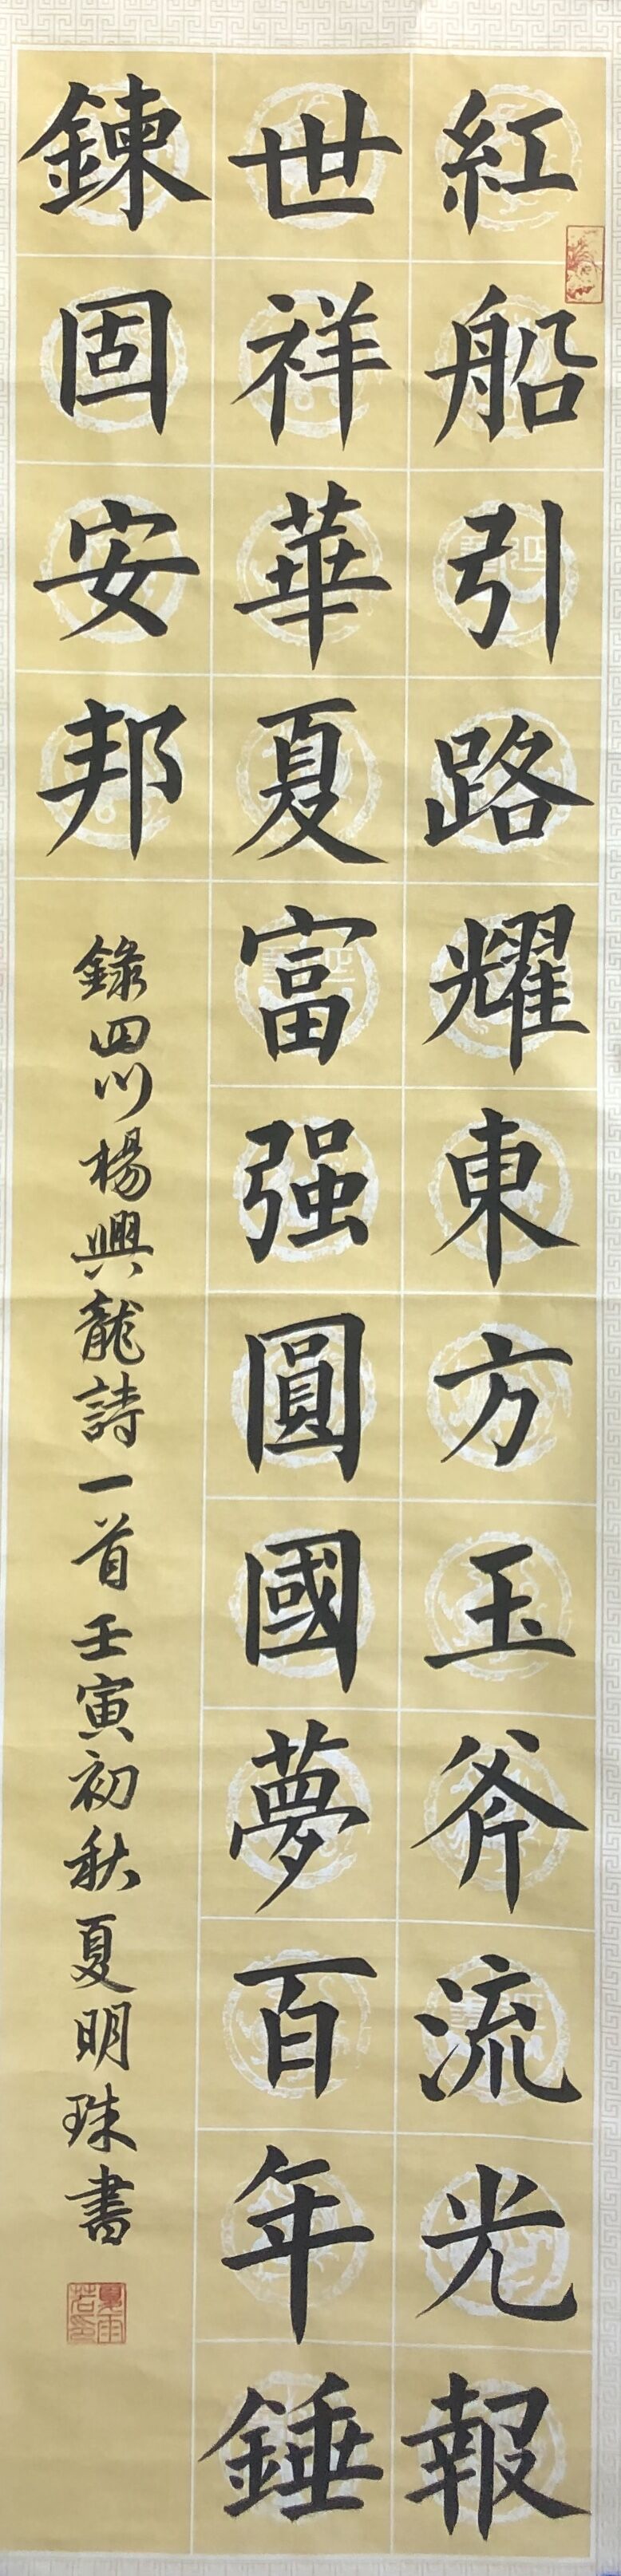 紅船引路耀東方玉斧流光報
世祥華夏富强圓國夢百年錘
鍊固安邦
錄四川楊興龍詩一首壬寅初秋夏明珠書